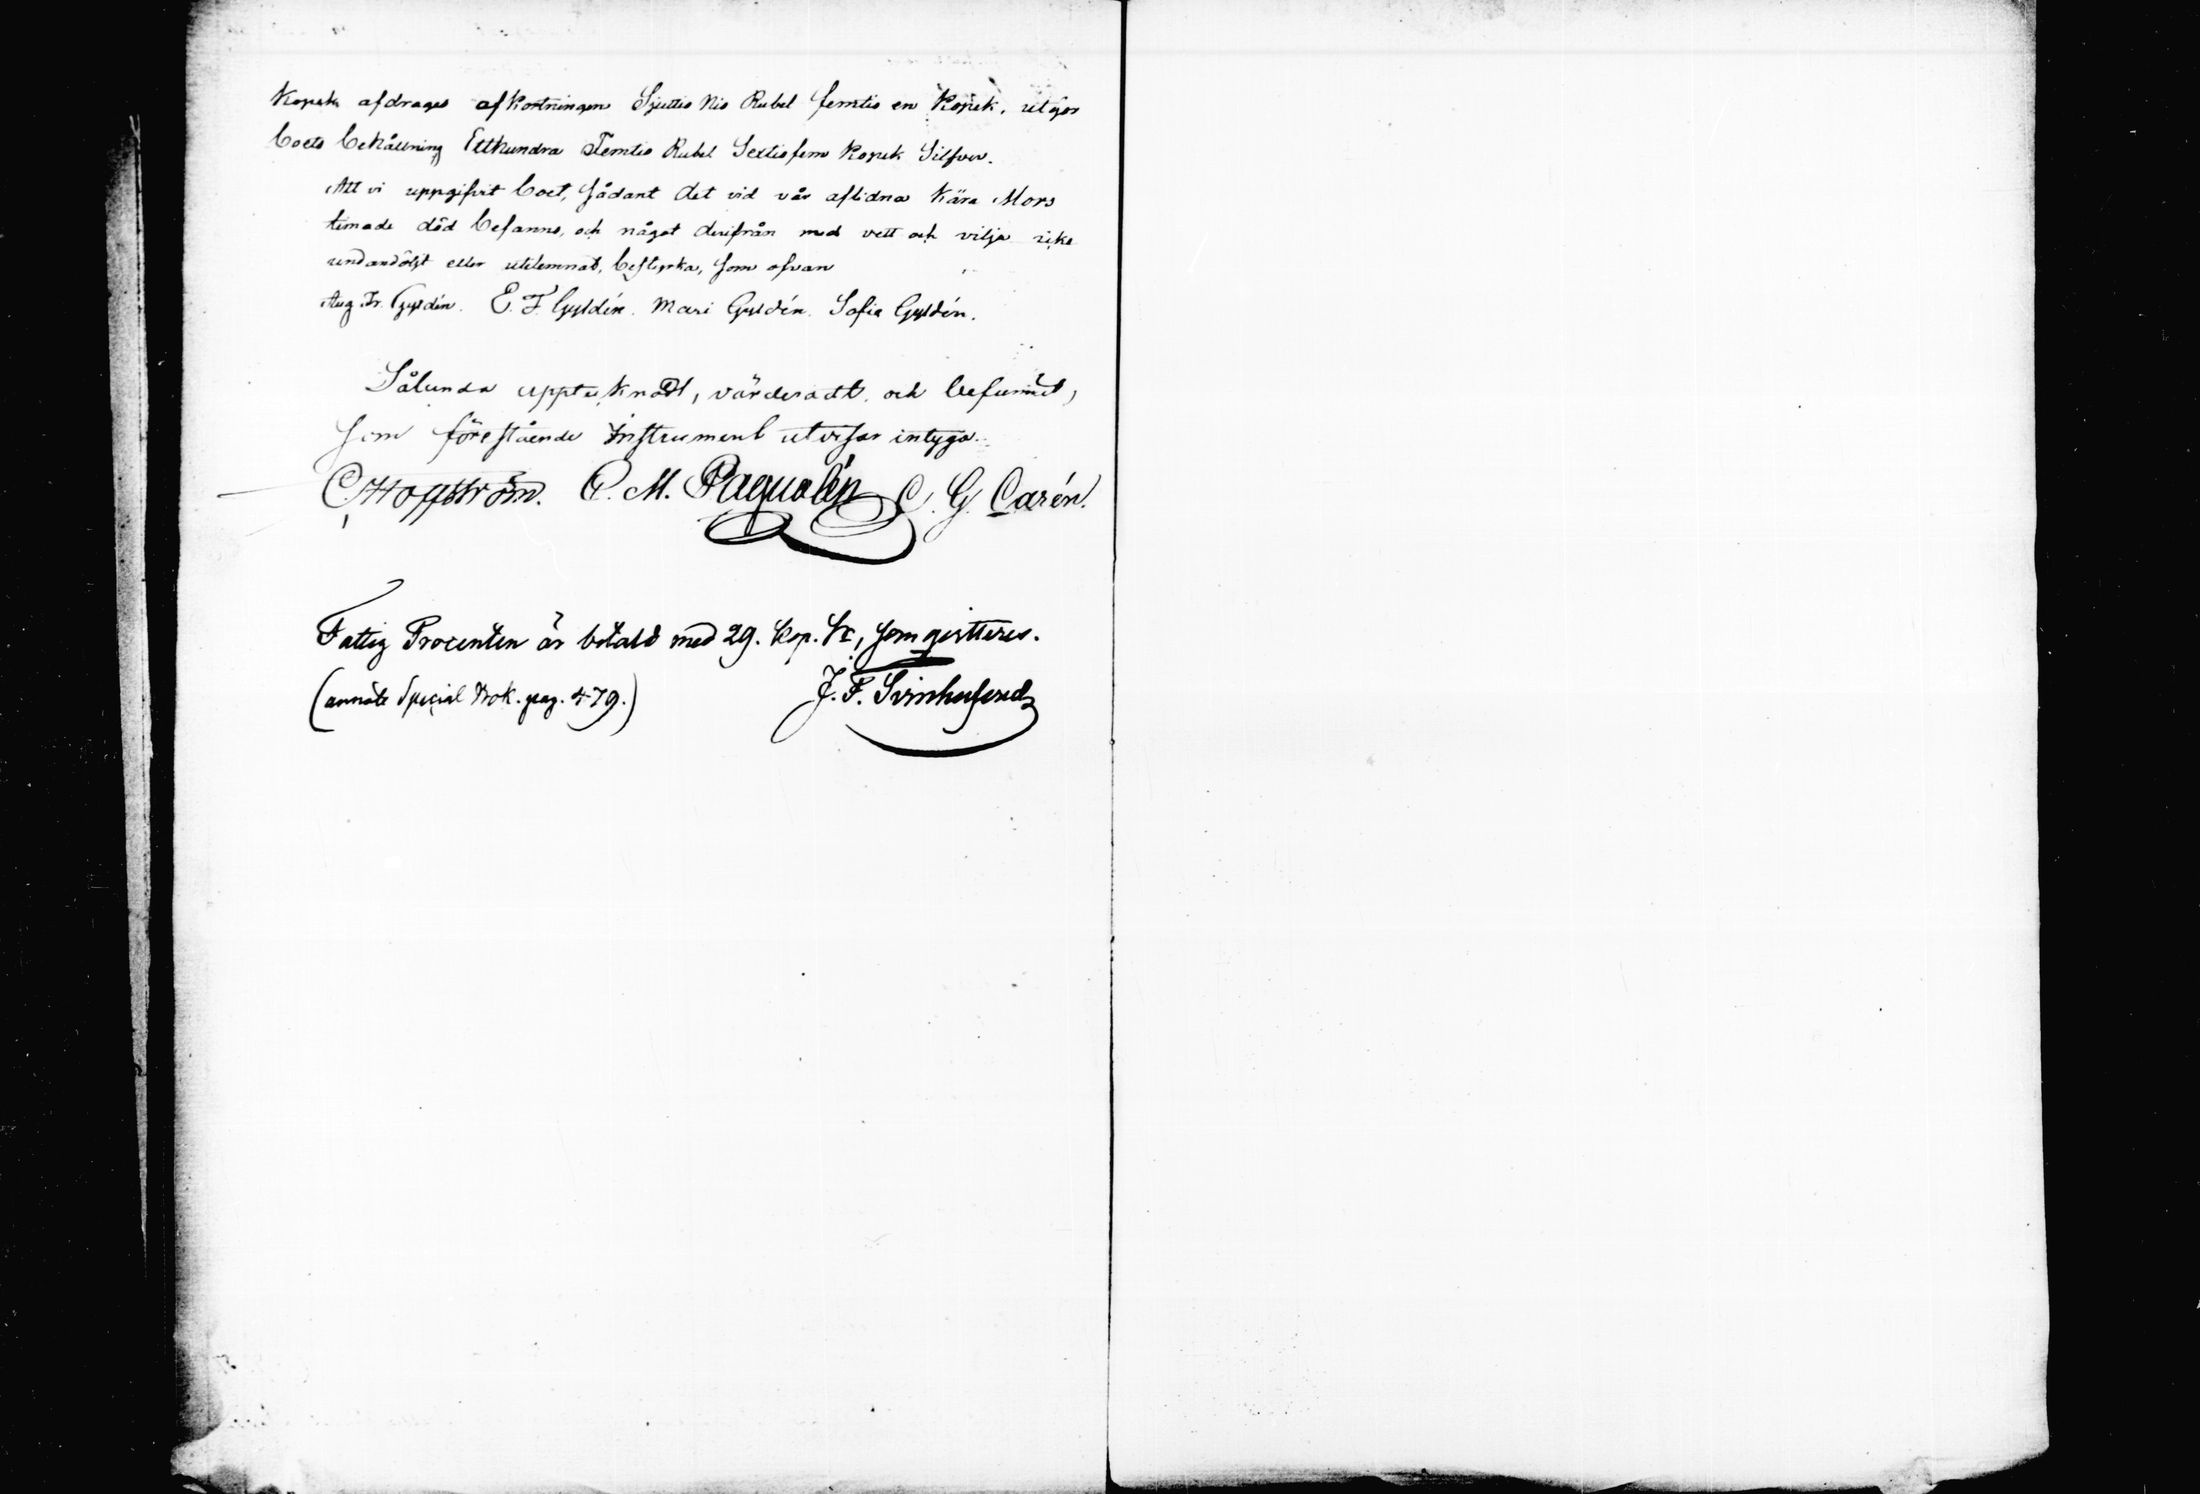 Kopek afdrages afkortningen Sjuttio Nio Rubel femtio en Kopek, utgör
Boets Behållning Etthundra Femtio Rubel Sextiofem Kopek Silfver.
Att vi uppgifvit Boet, sådant det vid vår aflidna Kära Mors
timade död befanns, och något derifrån med vett och vilja icke
undandöljt eller utelemnat, bestyrka, som ofvan
Aug. Fr. Gyldén. E. F. Gyldén. Mari Gyldén. Sofia Gyldén.
Sålunda upptecknadt, värderadt och befunnit,
som förestående Instrument utvisar intyga.
C. Hoffström. C. M. Pagualén C. G. Carén.
Fattig Procenten är betald med 29. Kop. Sr, som qvitteras.
(annôte Special Bok. pag. 479.) J. F. Svinhufvud